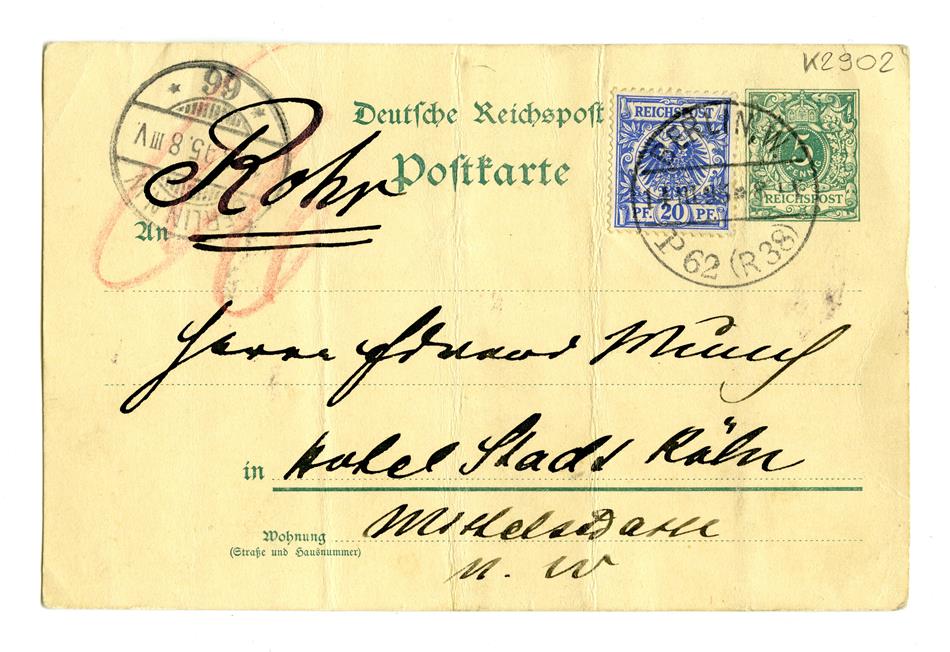 K2902
Deutsche Reichspost
Postkarte
Rohr
An
99
95.8 III V
BERLIN
REICHSPOST
PF. 20 PF.
5
PFENNIG
REICHSPOST
BERLIN, N.W.
P 62 (R 38)
Herrn Eduard Munch
in Hotel Stadt Köln
Wohnung Mittelstrasse
(Straße und Hausnummer)
N. W